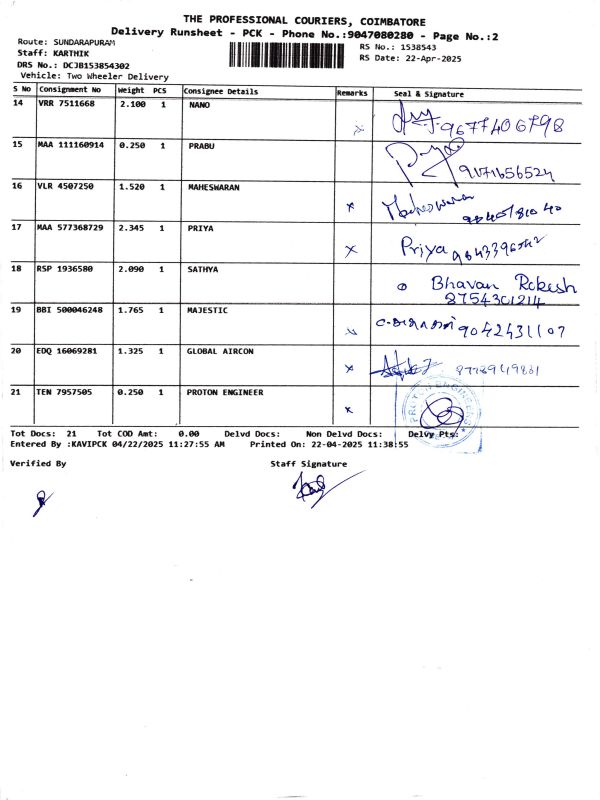 THE PROFESSIONAL COURIERS, COIMBATORE
Delivery Runsheet - PCK - Phone No.:9047080280 - Page No.:2
Route: SUNDARAPURAM
Staff: KARTHIK
DRS No.: DCJB153854302
Vehicle: Two Wheeler Delivery
RS No.: 1538543
RS Date: 22-Apr-2025
S No Consignment No Weight PCS Consignee Details Remarks Seal & Signature
14 VRR 7511668 2.100 1 NANO 9677406798
15 MAA 111160914 0.250 1 PRABU 9171656524
16 VLR 4507250 1.520 1 MAHESWARAN x Maheswaran
17 MAA 577368729 2.345 1 PRIYA x Priya 9843396542
18 RSP 1936580 2.090 1 SATHYA Bhavan Rakesh
8754301214
19 BBI 500046248 1.765 1 MAJESTIC 9042431107
20 EDQ 16069281 1.325 1 GLOBAL AIRCON x
21 TEN 7957505 0.250 1 PROTON ENGINEER x
Tot Docs: 21 Tot COD Amt: 0.00 Delvd Docs: Non Delvd Docs: Delvy Pts:
Entered By :KAVIPCK 04/22/2025 11:27:55 AM Printed On: 22-04-2025 11:38:55
Verified By Staff Signature